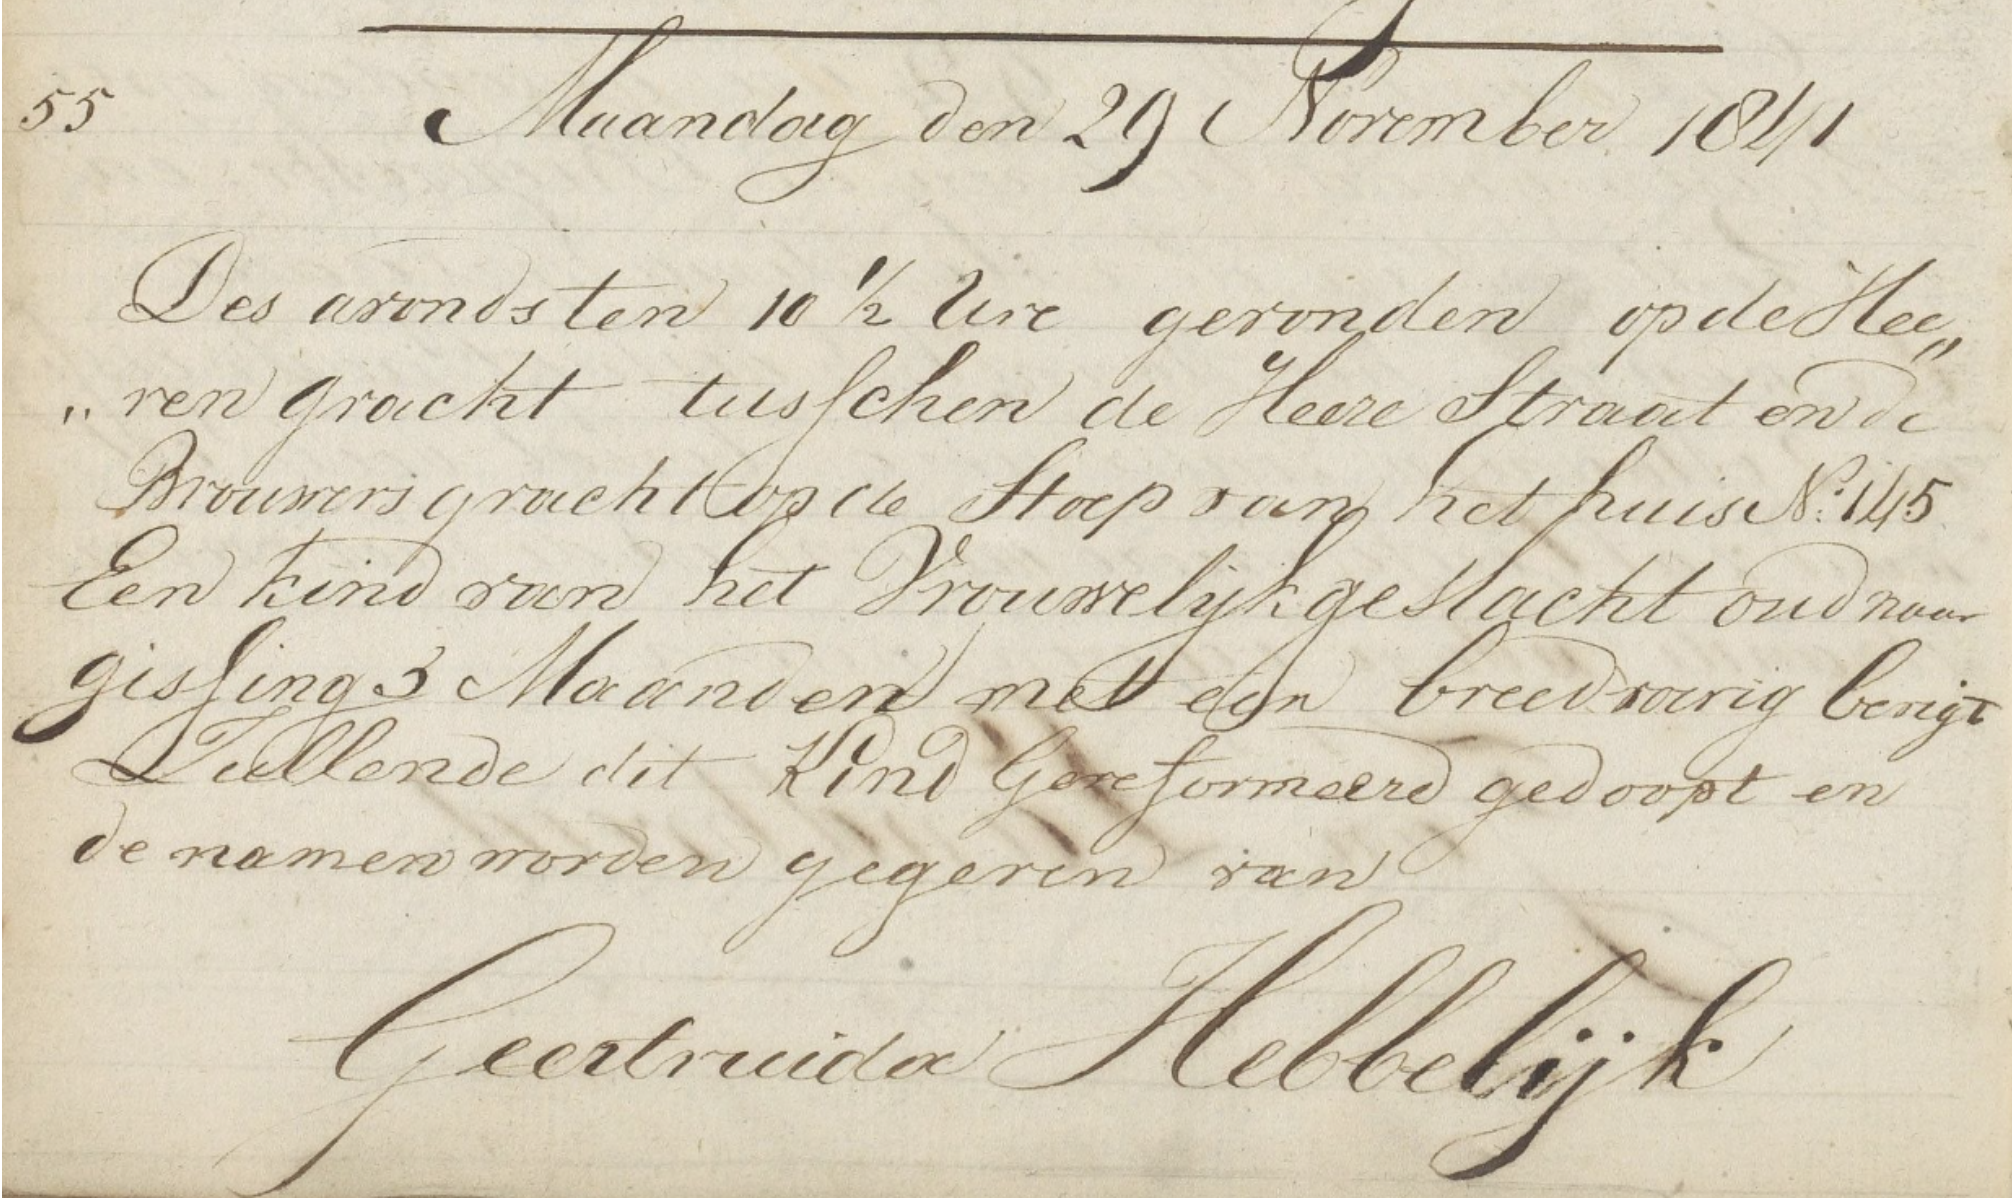 55 Maandag den 29 November 1841
Des avonds ten 10 1/2 Ure gevonden op de Hee„
„ren gracht tusschen de Heere Straat en de
Brouwers gracht op de Stoep van het huis N: 145
Een kind van het Vrouwelijk geslacht oud naar
gissing 3 Maanden met een breedvoerig berigt
Zullende dit Kind Gereformeerd gedoopt en
de namen worden gegeven van
Geertruida Hebbelijk